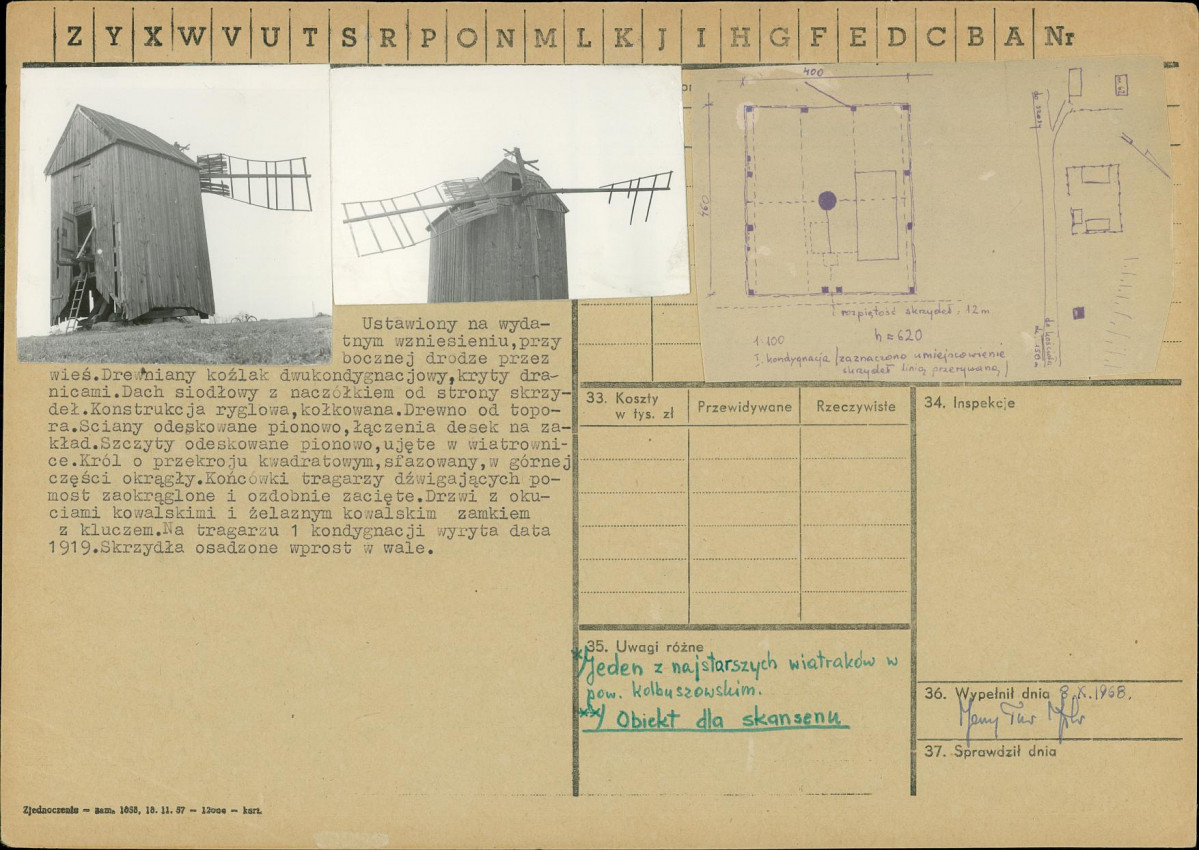 Z Y X W V U T S R P O N M L K J I H G F E D C B A Nr
400
460
rozpiętość skrzydeł : 12 m
1:100
h = 620
I. kondygnacja /zaznaczono umiejscowienie
skrzydeł linią przerywaną/
Ustawiony na wyda-
tnym wzniesieniu,przy
bocznej drodze przez
wieś.Drewniany koźlak dwukondygnacjowy,kryty dra-
nicami.Dach siodłowy z naczółkiem od strony skrzy-
deł.Konstrukcja ryglowa,kołkowana.Drewno od topo-
ra.Ściany odeskowane pionowo,łączenia desek na za-
kład.Szczyty odeskowane pionowo,ujęte w wiatrowni-
ce.Król o przekroju kwadratowym,sfazowany,w górnej
części okrągły.Końcówki tragarzy dźwigających po-
most zaokrąglone i ozdobnie zacięte.Drzwi z oku-
ciami kowalskimi i żelaznym kowalskim zamkiem
z kluczem.Na tragarzu 1 kondygnacji wyryta data
1919.Skrzydła osadzone wprost w wale.
33. Koszty
w tys. zł
Przewidywane
Rzeczywiste
34. Inspekcje
35. Uwagi różne
*/Jeden z najstarszych wiatraków w
pow. kolbuszowskim.
**/ Obiekt dla skansenu
36. Wypełnił dnia 8.X.1968.
37. Sprawdził dnia
Zjednoczenie — zam. 1858, 18. 11. 67 — 12000 — kart.